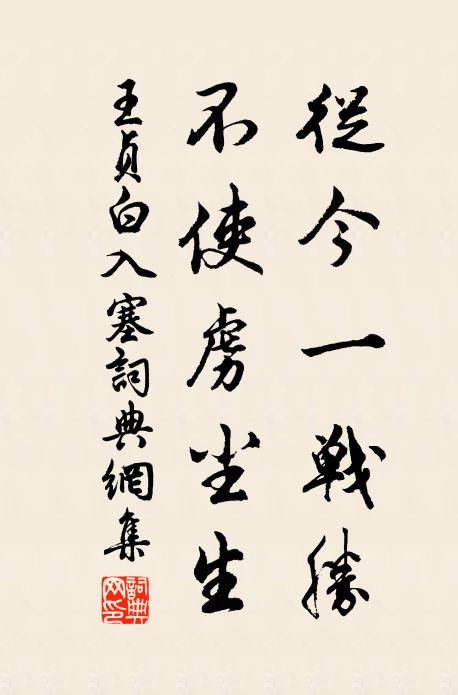 從今一戰勝
不使虜尘生
王貞白入塞詞典網集
詞典
网印